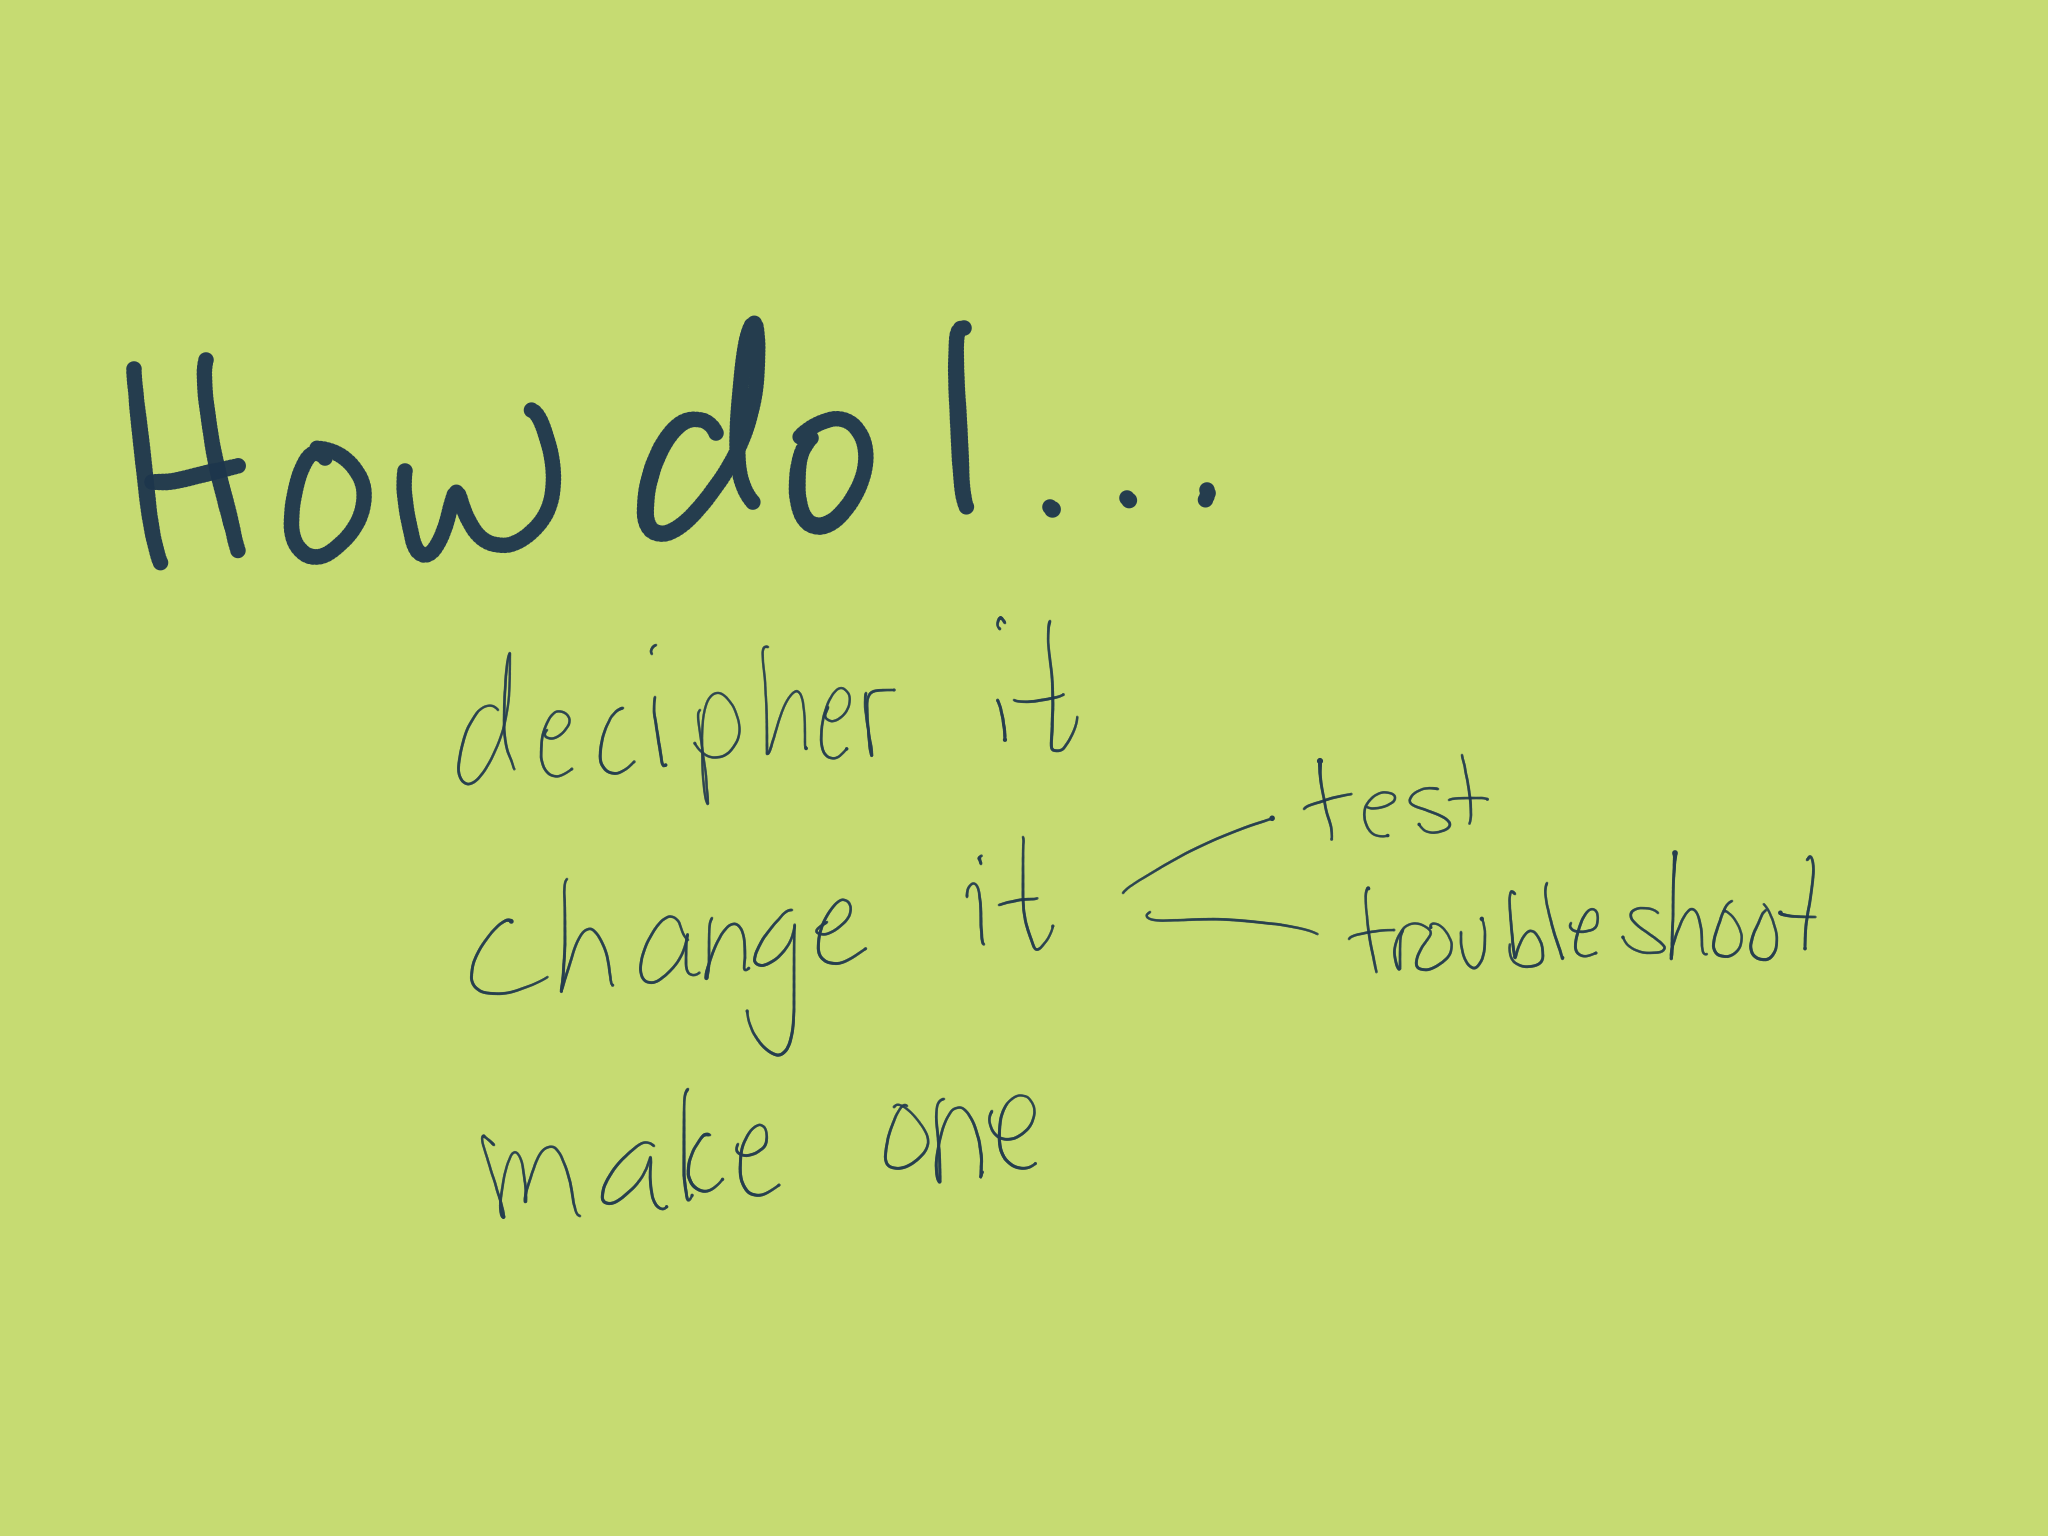 How do I...
decipher it
change it
test
troubleshoot
make one